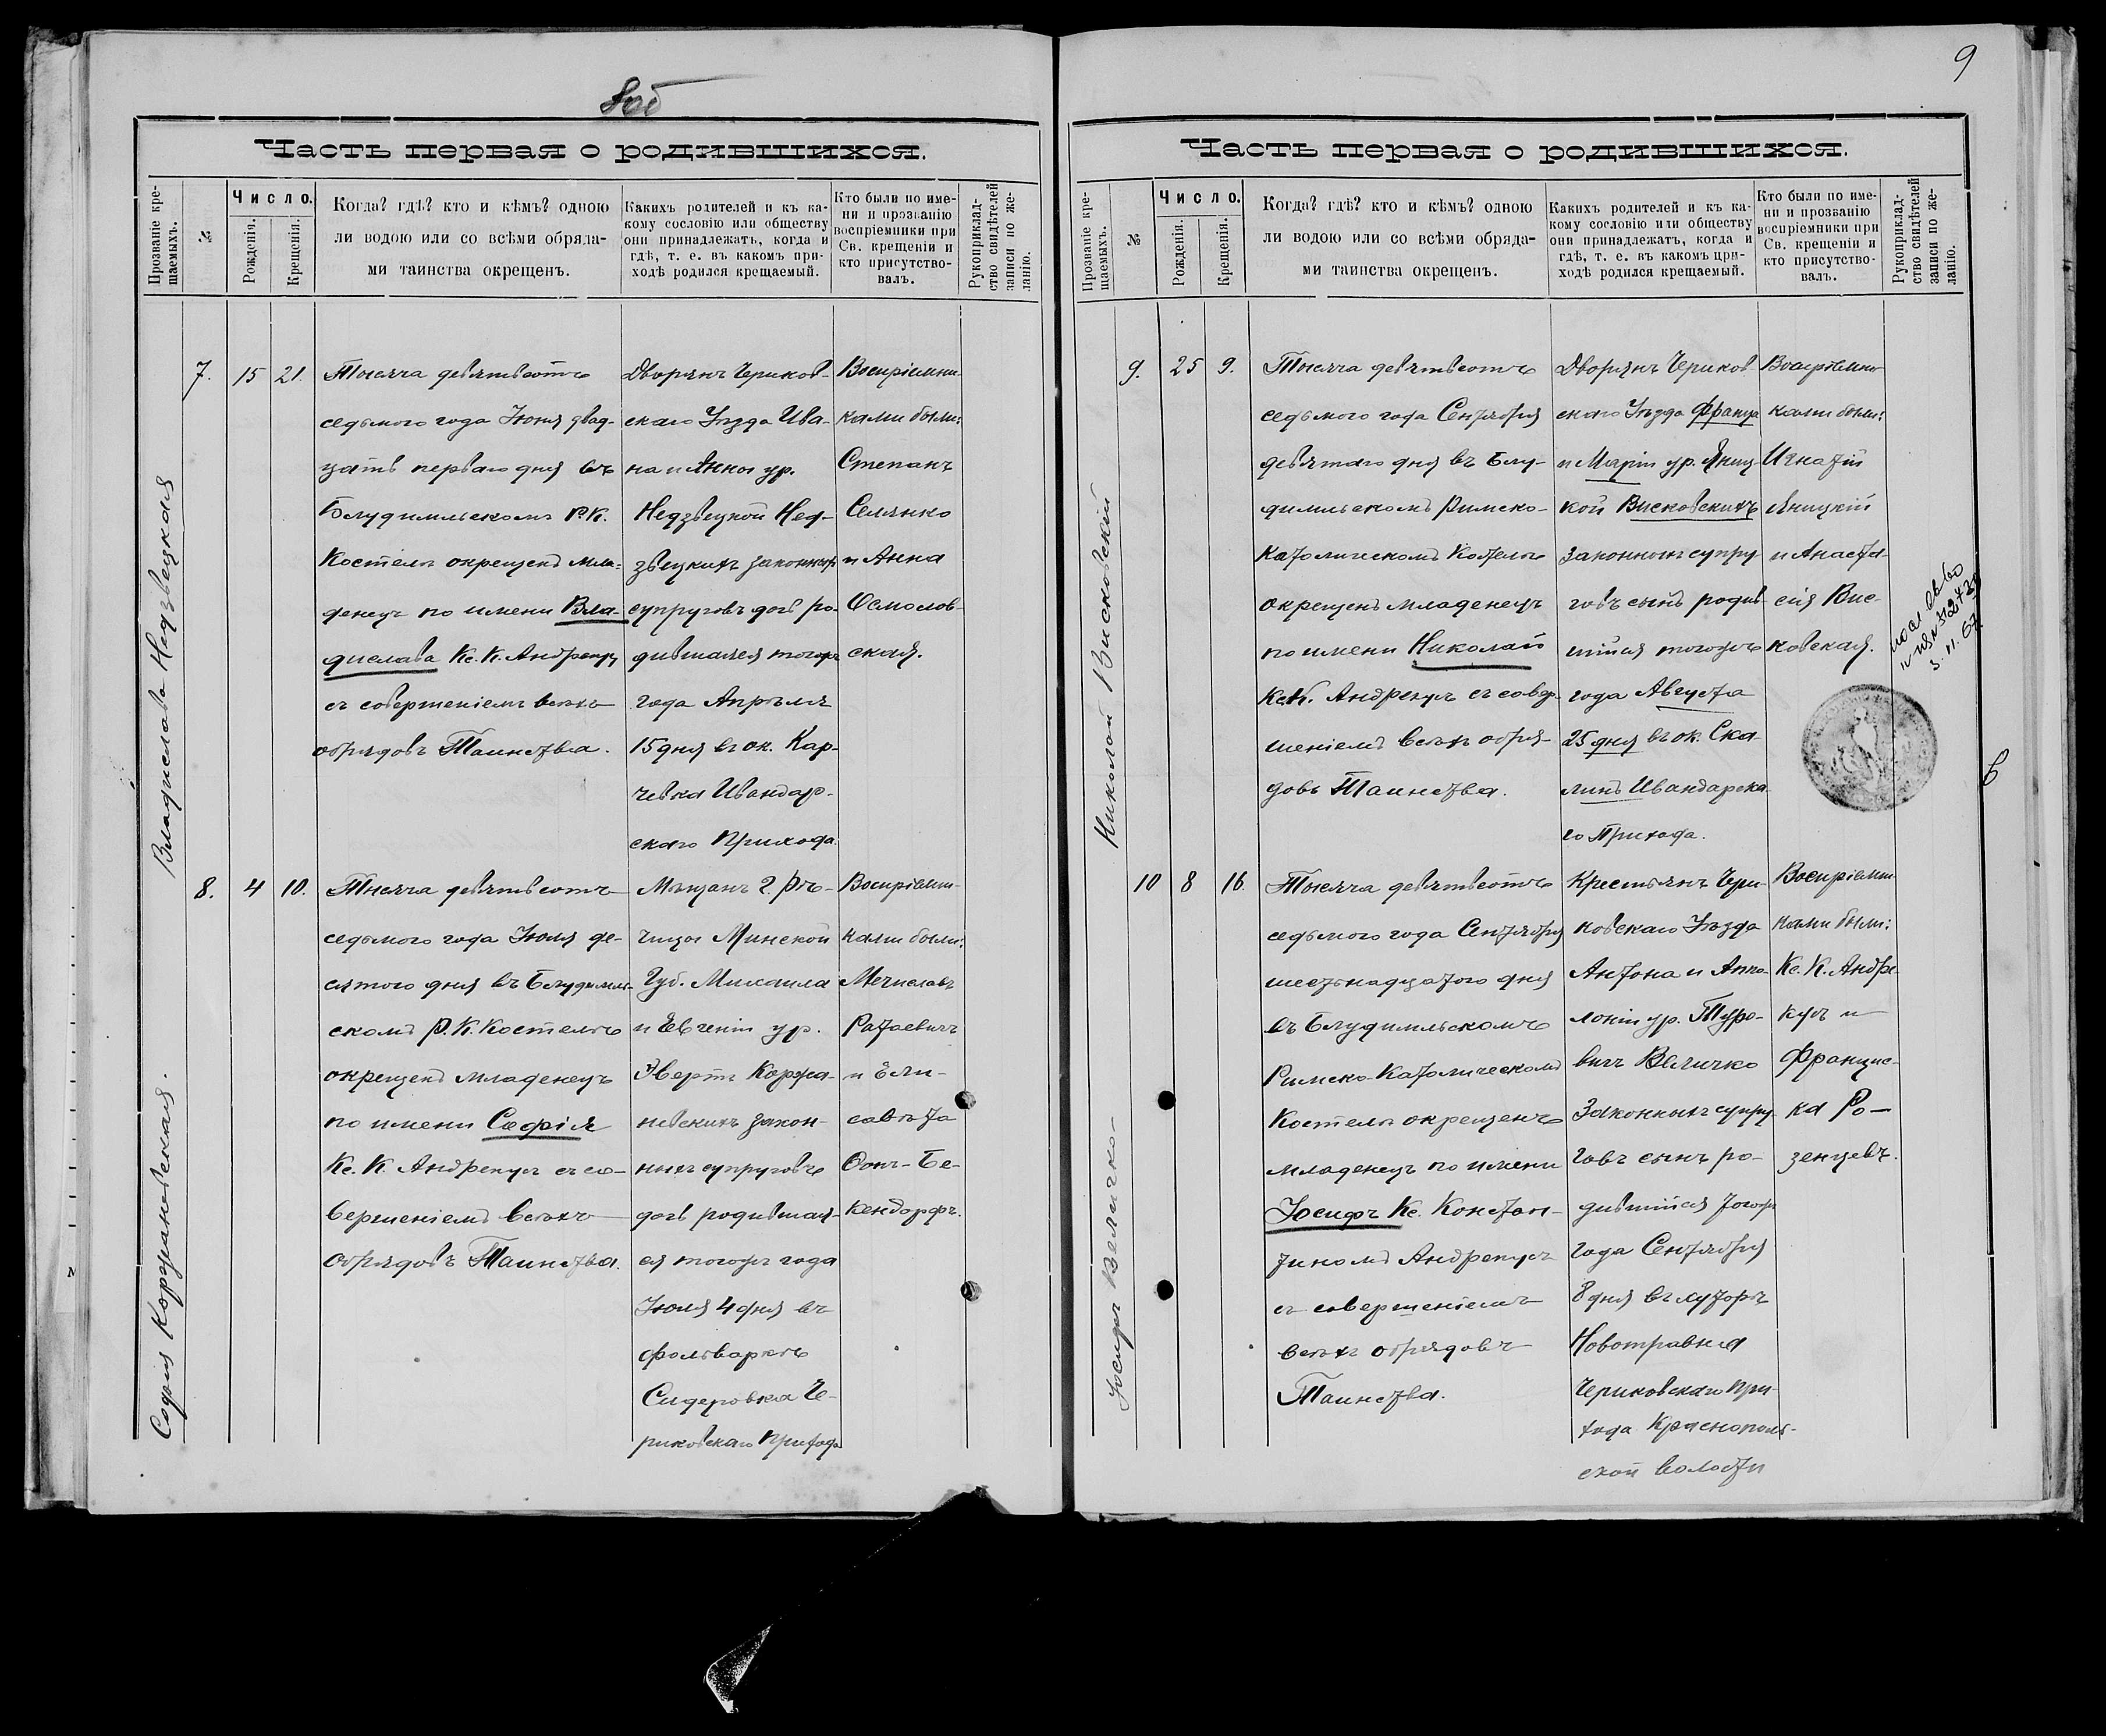 8об
Часть первая о родившихся.
Прозваніе кре-
щаемыхъ.
№
Число.
Рожденія.
Крещенія.
Когда? гдѣ? кто и кѣмъ? одною
ли водою или со всѣми обряда-
ми таинства окрещенъ.
Какихъ родителей и къ ка-
кому сословію или обществу
они принадлежатъ, когда и
гдѣ, т. е. въ какомъ при-
ходѣ родился крещаемый.
Кто были по име-
ни и прозванію
воспріемники при
Св. крещеніи и
кто присутство-
валъ.
Рукоприклад-
ство свидѣтелей
записи по же-
ланію.
Владислава Недзвецкая
7.
15
21.
Тысяча девятьсотъ
седьмого года Іюня двад-
цать перваго дня въ
Блудимльскомъ Р. К.
Костелѣ окрещенъ мла-
денецъ по имени Вла-
дислава Кс. К. Андрекусъ
съ совершеніемъ всѣхъ
обрядовъ Таинства.
Дворянъ Чериков-
скаго Уѣзда Ива-
на и Анны ур.
Недзвецкой Нед-
звецкихъ законныхъ
супруговъ дочь ро-
дившаяся тогожъ
года Апрѣля
15 дня въ ок. Кар-
чевка Ивандар-
скаго Прихода.
Воспріемни-
ками были:
Степанъ
Селянко
и Анна
Осмолов-
ская.
Софія Коржановская.
8.
4
10.
Тысяча девятьсотъ
седьмого года Іюля де-
сятого дня въ Блудимль-
скомъ Р. К. Костелѣ
окрещенъ младенецъ
по имени Софія
Кс. К. Андрекусъ съ со-
вершеніемъ всѣхъ
обрядовъ Таинства.
Мѣщанъ г. Рѣ-
чицы Минской
Губ. Михаила
и Евгеніи ур.
Эвертъ Коржа-
невскихъ закон-
ныхъ супруговъ
дочь родившая-
ся тогожъ года
Іюля 4 дня въ
фольваркѣ
Сидеровка Че-
риковскаго Прихода
Воспріемни-
ками были:
Мечиславъ
Ратаевичъ
и Ели-
савѣта
Фонъ-Бе-
кендорфъ.
9
Часть первая о родившихся.
Прозваніе кре-
щаемыхъ.
№
Число.
Рожденія.
Крещенія.
Когда? гдѣ? кто и кѣмъ? одною
ли водою или со всѣми обряда-
ми таинства окрещенъ.
Какихъ родителей и къ ка-
кому сословію или обществу
они принадлежатъ, когда и
гдѣ, т. е. въ какомъ при-
ходѣ родился крещаемый.
Кто были по име-
ни и прозванію
воспріемники при
Св. крещеніи и
кто присутство-
валъ.
Рукоприклад-
ство свидѣтелей
записи по же-
ланію.
Николай Висковскій
9.
25
9.
Тысяча девятьсотъ
седьмого года Сентября
девятаго дня въ Блу-
димльскомъ Римско-
Католическомъ Костелѣ
окрещенъ младенецъ
по имени Николай
Кс. К. Андрекусъ съ совер-
шеніемъ всѣхъ обря-
довъ Таинства.
Дворянъ Чериков-
скаго Уѣзда Франца
и Маріи ур. Яниц-
кой Висковскихъ
законныхъ супру
говъ сынъ родив-
шійся тогожъ
года Августа
25 дня въ ок. Ска-
линъ Ивандарска-
го Прихода.
Воспріемни-
ками были:
Игнатій
Яницкій
и Анаста
сія Вис-
ковская.
Іосифъ Величко
10
8
16.
Тысяча девятьсотъ
седьмого года Сентября
шестьнадцатого дня
въ Блудимльскомъ
Римско-Католическомъ
Костелѣ окрещенъ
младенецъ по имени
Іосифъ Кс. Констан-
тиномъ Андрекусъ
съ совершеніемъ
всѣхъ обрядовъ
Таинства.
Крестьянъ Чери-
ковскаго Уѣзда
Антона и Апо-
лоніи ур. Туро-
вичъ Величко
Законныхъ супру
говъ сынъ ро-
дившійся тогожъ
года Сентября
8 дня въ хуторѣ
Новотравня
Чериковскаго При-
хода Краснополь-
ской волости
Воспріемни-
ками были:
Кс. К. Андре-
кусъ и
Францис-
ка Ро-
зенцевъ.